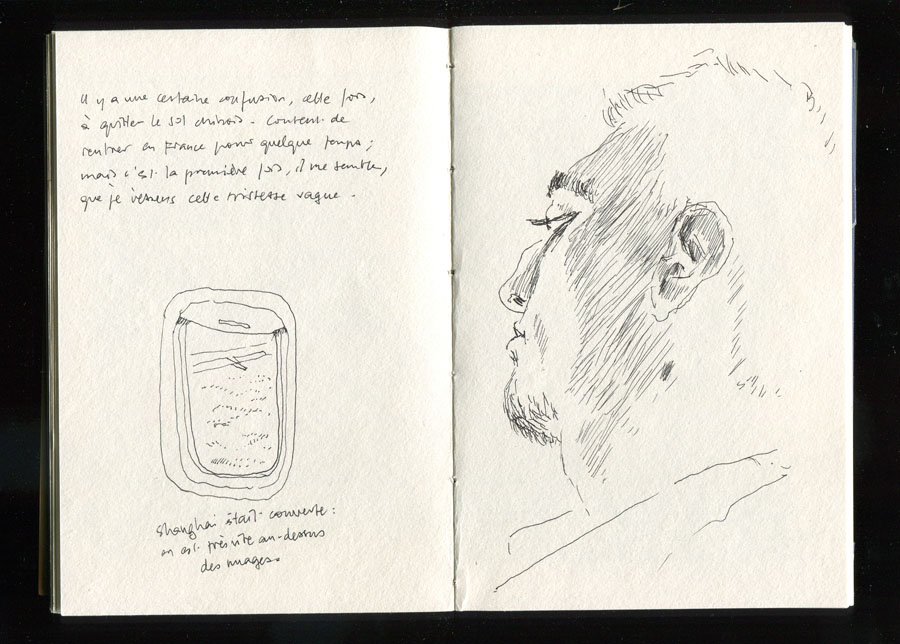 il y a une certaine confusion, cette fois,
à quitter le sol chinois - content de
rentrer en France pour quelque temps ;
mais c'est la première fois, il me semble,
que je ressens cette tristesse vague -
Shanghai était couverte :
on est très vite au-dessus
des nuages.